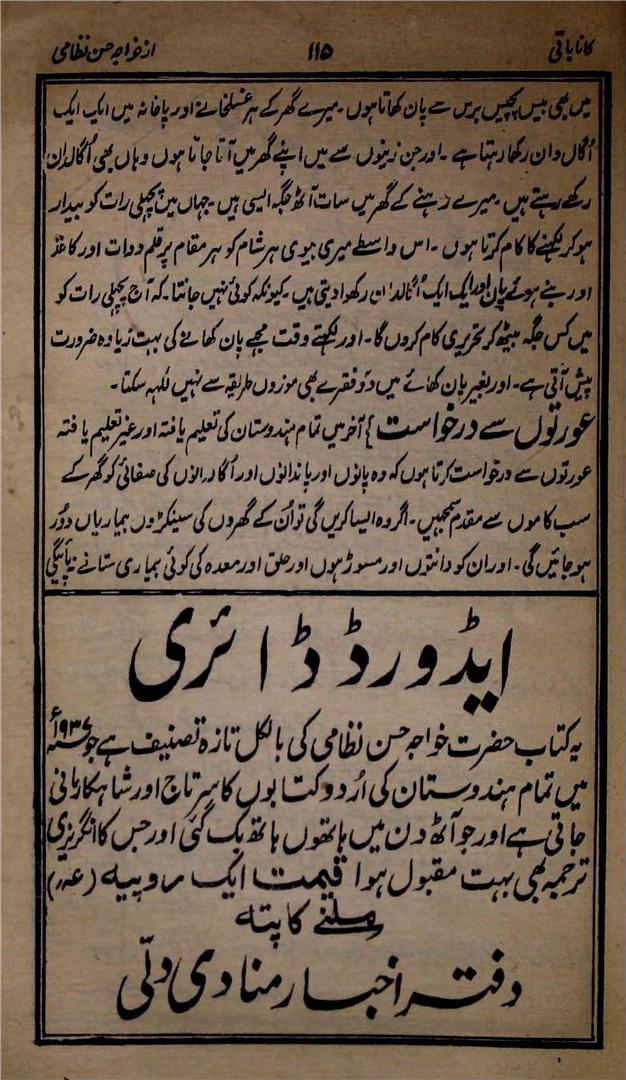 کانا باتی ۱۱۵ از خواجہ حسن نظامی
میں بھی بیس پچیس برس سے پان کھاتا ہوں۔ میرے گھر کے ہر غسلخانے اور پاخانہ میں ایک ایک
اُگال دان رکھا رہتا ہے۔ اور جن زینوں سے میں اپنے گھر میں آتا جاتا ہوں وہاں بھی اُگالدان
رکھے رہتے ہیں۔ میرے رہنے کے گھر میں سات آٹھ جگہ ایسی ہیں۔ جہاں میں پچھلی رات کو بیدار
ہو کر لکھنے کا کام کرتا ہوں۔ اس واسطے میری بیوی ہر شام کو ہر مقام پر قلم دوات اور کاغذ
اور بنے ہوئے پان اور ایک ایک اُگالدان رکھوا دیتی ہیں۔ کیونکہ کوئی نہیں جانتا۔ کہ آج پچھلی رات کو
میں کس جگہ بیٹھ کر تحریری کام کروں گا۔ اور لکھتے وقت مجھے پان کھانے کی بہت زیادہ ضرورت
پیش آتی ہے۔ اور بغیر پان کھائے میں دو فقرے بھی موزوں طریقہ سے نہیں لکھ سکتا۔
عورتوں سے درخواست } آخر میں تمام ہندوستان کی تعلیم یافتہ اور غیر تعلیم یافتہ
عورتوں سے درخواست کرتا ہوں کہ وہ پانوں اور پاندانوں اور اُگالدانوں کی صفائی کو گھر کے
سب کاموں سے مقدم سمجھیں۔ اگر وہ ایسا کریں گی تو اُن کے گھروں کی سینکڑوں بیماریاں دُور
ہو جائیں گی۔ اور ان کو دانتوں اور مسوڑھوں اور حلق اور معدہ کی کوئی بیماری ستانے نہ پائیگی
ایڈورڈ ڈائری
یہ کتاب حضرت خواجہ حسن نظامی کی بالکل تازہ تصنیف ہے جو ۱۹۳۷ء
میں تمام ہندوستان کی اُردو کتابوں کا سرتاج اور شاہکار مانی
جاتی ہے اور جو آٹھ دن میں ہاتھوں ہاتھ بک گئی اور جس کا انگریزی
ترجمہ بھی بہت مقبول ہوا قیمت ایک روپیہ
ملنے کا پتہ
دفتر اخبار منادی دلّی